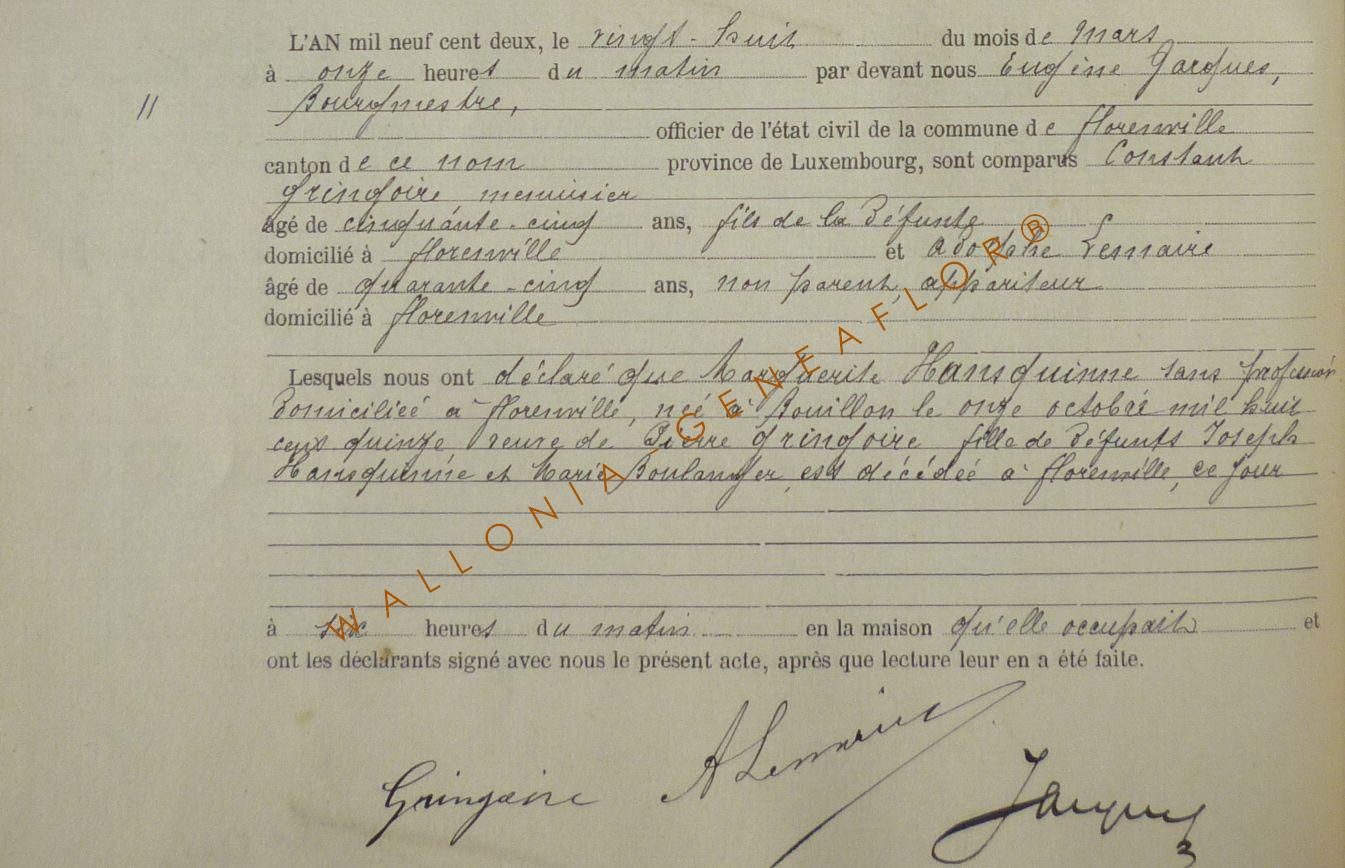 L'AN mil neuf cent deux, le vingt-huit du mois de Mars
à onze heures du matin par devant nous Eugène Jacques,
11
Bourgmestre,
officier de l'état civil de la commune de florenville
canton de ce nom province de Luxembourg, sont comparus Constant
Gringoire, menuisier
âgé de cinquante-cinq ans, fils de la défunte
domicilié à florenville et Adolphe Lemaire
âgé de quarante-cinq ans, non parent, appariteur
domicilié à florenville
Lesquels nous ont déclaré que Marguerite Hansquinne sans profession
domiciliée à florenville, née à Bouillon le onze octobre mil huit
cent quinze veuve de Pierre Gringoire fille de défunts Joseph
Hansquenne et Marie Boulanger, est décédée à florenville, ce jour
à six heures du matin en la maison qu'elle occupait et
ont les déclarants signé avec nous le présent acte, après que lecture leur en a été faite.
Gringoire ALemaire Jacques
WALLONIA-GENEAFLOR®